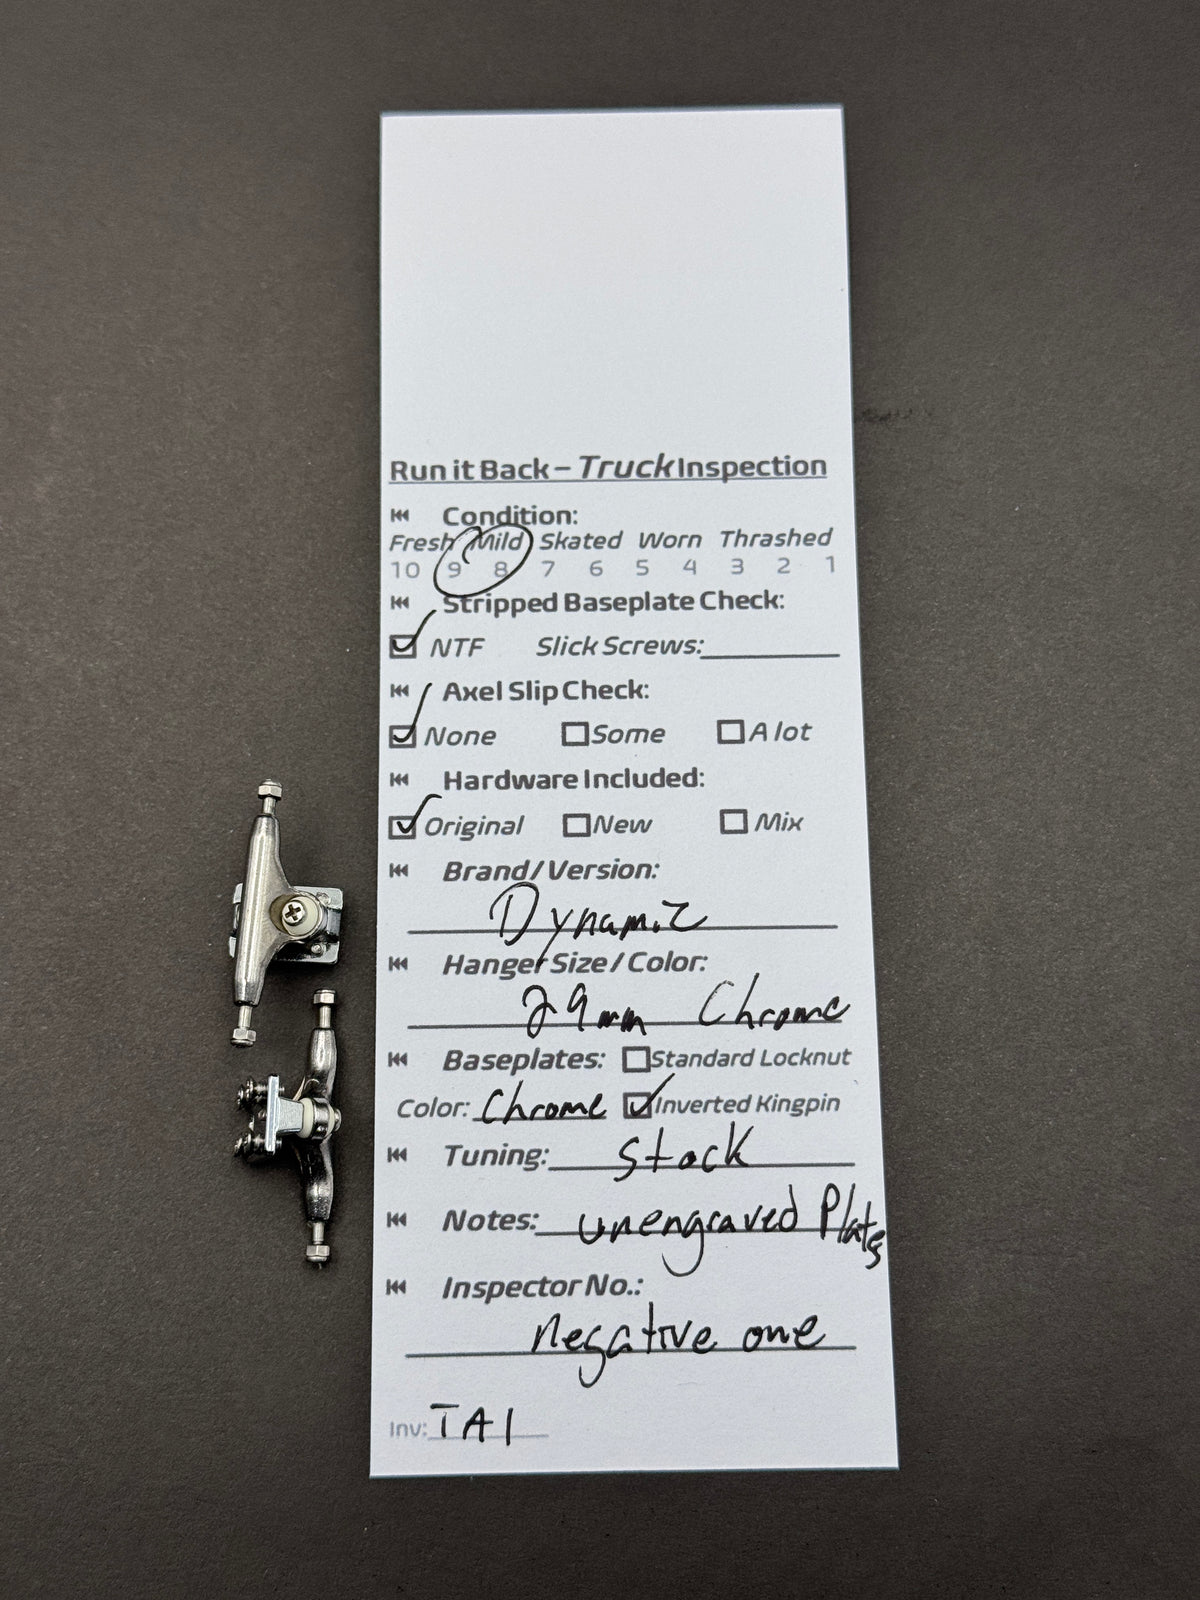 Run it Back – Truck Inspection
Condition:
Fresh Mild Skated Worn Thrashed
10 9 8 7 6 5 4 3 2 1
Stripped Baseplate Check:
NTF Slick Screws:
Axel Slip Check:
None Some A lot
Hardware Included:
Original New Mix
Brand / Version:
Dynamic
Hanger Size / Color:
29mm Chrome
Baseplates: Standard Locknut
Color: Chrome Inverted Kingpin
Tuning: Stock
Notes: unengraved Plates
Inspector No.:
negative one
Inv: TA1